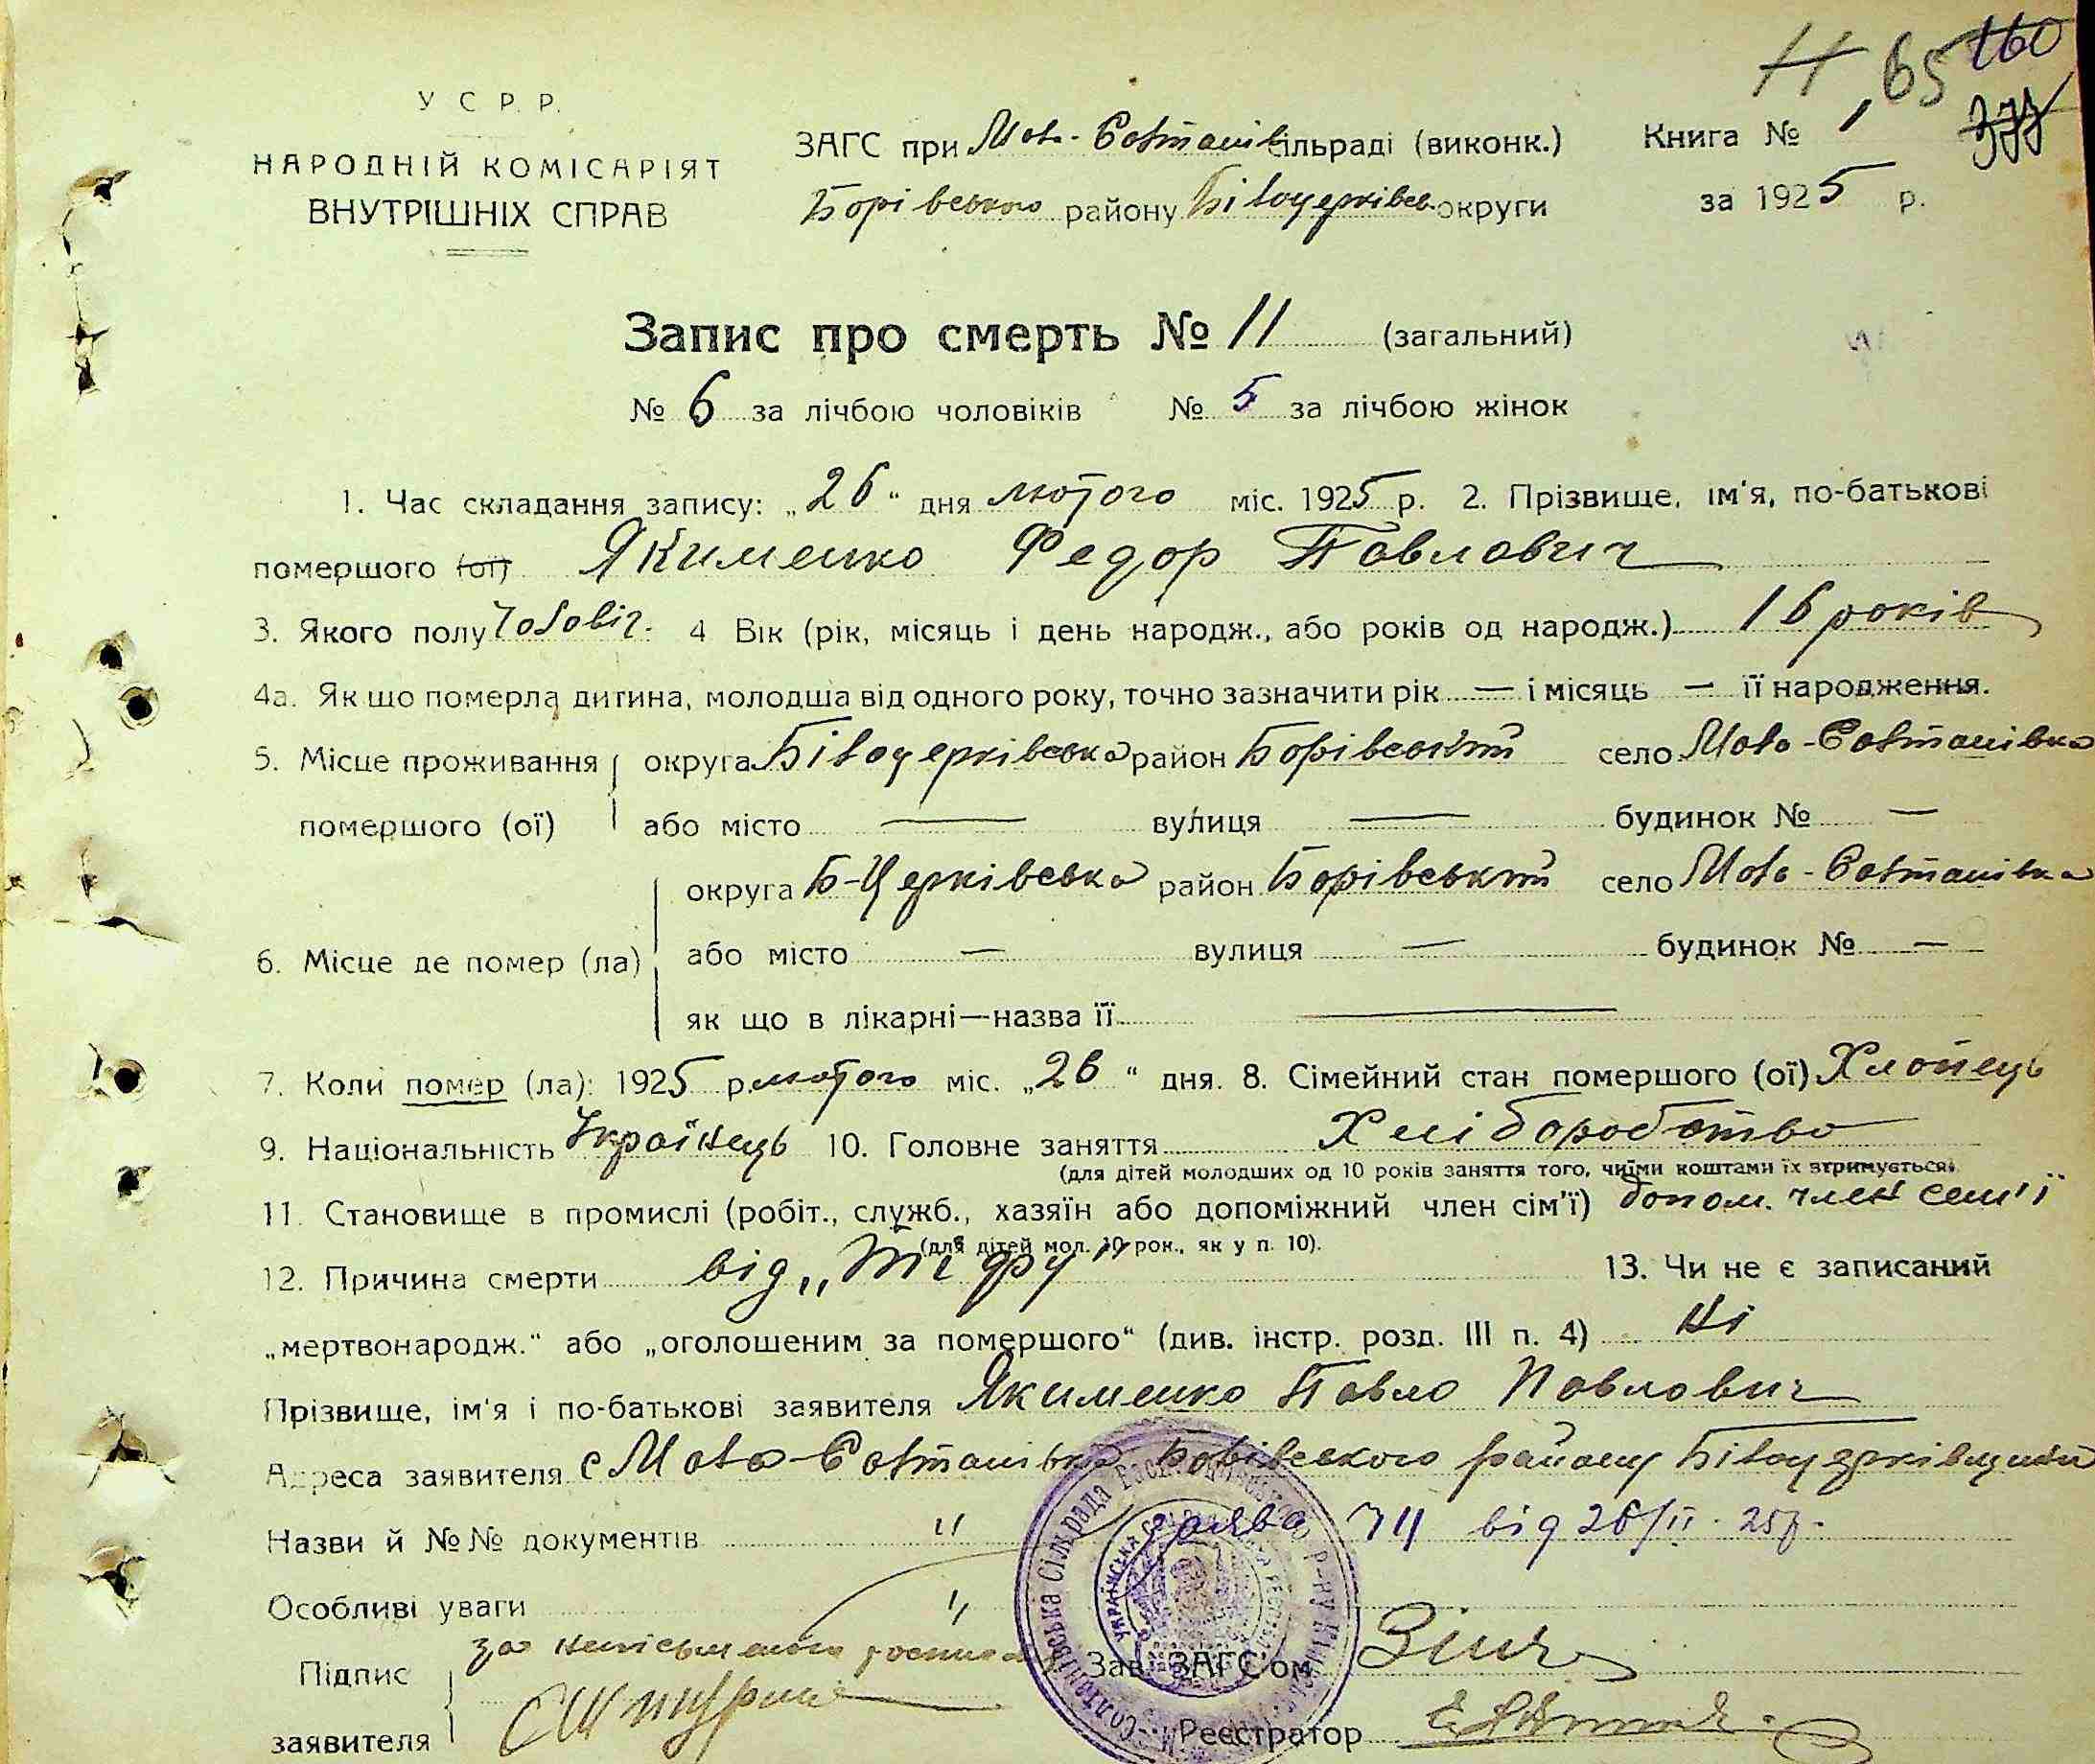 Н 65 160
377
У С Р. Р.
НАРОДНІЙ КОМІСАРІЯТ
ВНУТРІШНІХ СПРАВ
ЗАГС при Мало-Солтанів сільраді (виконк.)
Борівського району Білоцерківськ. округи
Книга № 1
за 1925 р.
Запис про смерть № 11 (загальний)
№ 6 за лічбою чоловіків № 5 за лічбою жінок
1. Час складання запису: „26“ дня лютого міс. 1925 р. 2. Прізвище, ім'я, по-батькові
помершого (ої) Якименко Федор Павлович
3. Якого полу Чоловіч. 4 Вік (рік, місяць і день народж., або років од народж.) 16 років
4а. Як що померла дитина, молодша від одного року, точно зазначити рік — і місяць — її народження.
5. Місце проживання округа Білоцерківська район Борівський село Мало-Солтанівка
помершого (ої) або місто — вулиця — будинок № —
округа Б-Церківська район Борівський село Мало-Солтанівка
6. Місце де помер (ла) або місто — вулиця — будинок № —
як що в лікарні—назва її —
7. Коли помер (ла): 1925 р. лютого міс. „26“ дня. 8. Сімейний стан помершого (ої) Хлопець
9. Національність Українець 10. Головне заняття Хліборобство
(для дітей молодших од 10 років заняття того, чиїми коштами їх втримується)
11. Становище в промислі (робіт., служб., хазяїн або допоміжний член сім'ї) допом. член сем'ї
(для дітей мол. 10 рок., як у п. 10).
12. Причина смерти від „Тигфу" 13. Чи не є записаний
„мертвонародж.“ або „оголошеним за помершого“ (див. інстр. розд. III п. 4) Ні
Прізвище, ім'я і по-батькові заявителя Якименко Павло Павлович
Адреса заявителя с Мало-Солтанівка Борівського району Білоцерківщини
Назви й №№ документів " заява 74 від 26/II 25р.
Особливі уваги "
Підпис за неписьменого росписався
Зав. ЗАГС'ом
заявителя
Реєстратор